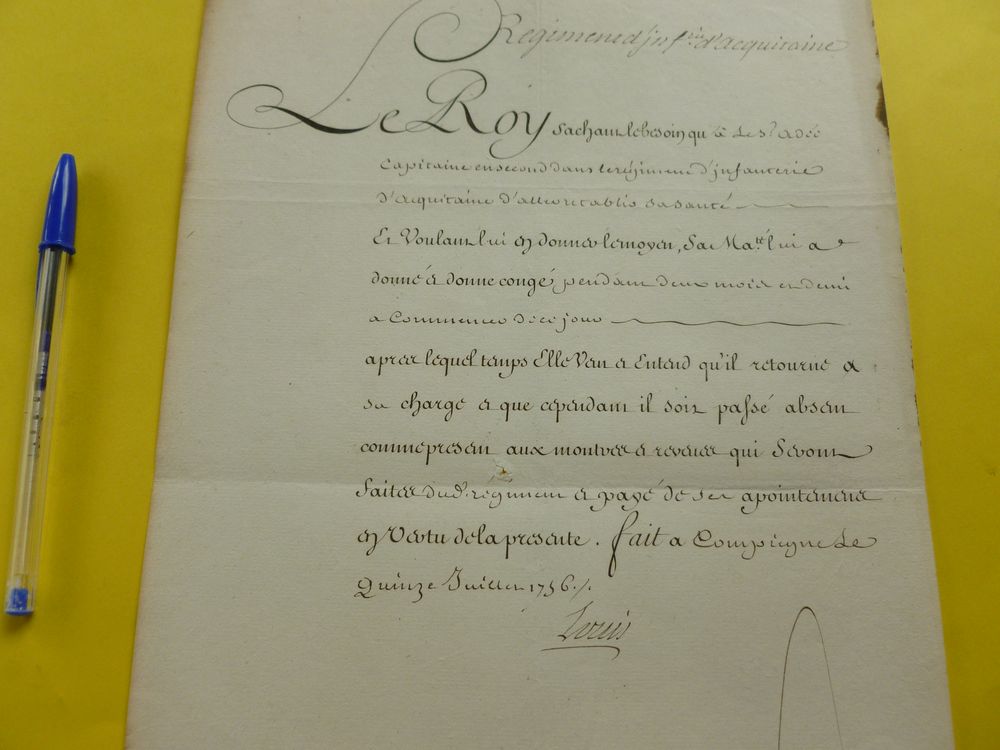 Regiment d'Inf.rie d'Acquitaine
Le Roy sachant le besoin qu'a le S.r
Capitaine en second dans le régiment d'jnfanterie
d'Acquitaine d'aller retablir sa santé
Et Voulant lui en donner le moyen, Sa Ma.té lui a
donné et donne congé pendant deux mois et demi
a Commencer de ce jour
apres lequel temps Elle Veut et Entend qu'il retourne a
sa charge et que cependant il soit passé absent
comme present aux montres et reveües qui Seront
faites dud. régiment et payé de ses apointemens
en Vertu de la presente. fait a Compiegne Le
Quinze Juillet 1756./.
Louis